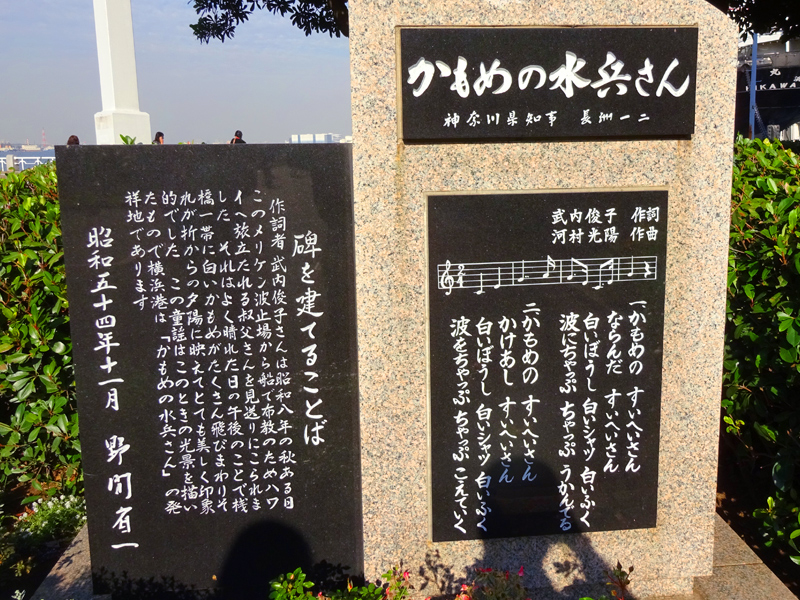 かもめの水兵さん
神奈川県知事 長洲一二
武内俊子 作詞
河村光陽 作曲
一、かもめの すいへいさん
ならんだ すいへいさん
白いぼうし 白いシャツ 白いふく
波にちゃっぷ ちゃっぷ うかんでる
二、かもめの すいへいさん
かけあし すいへいさん
白いぼうし 白いシャツ 白いふく
波をちゃっぷ ちゃっぷ こえていく
碑を建てることば
作詞者 武内俊子さんは昭和八年の秋ある日
このメリケン波止場から船で布教のためハワ
イへ旅立たれる叔父さんを見送りにこられま
した それはよく晴れた日の午後のことで桟
橋一帯に白いかもめがたくさん飛びまわりそ
れが折からの夕陽に映えてとても美しく印象
的でした この童謡はこのときの光景を描い
たもので横浜港は「かもめの水兵さん」の発
祥地であります
昭和五十四年十一月 野間有一
丸
HIKAWA